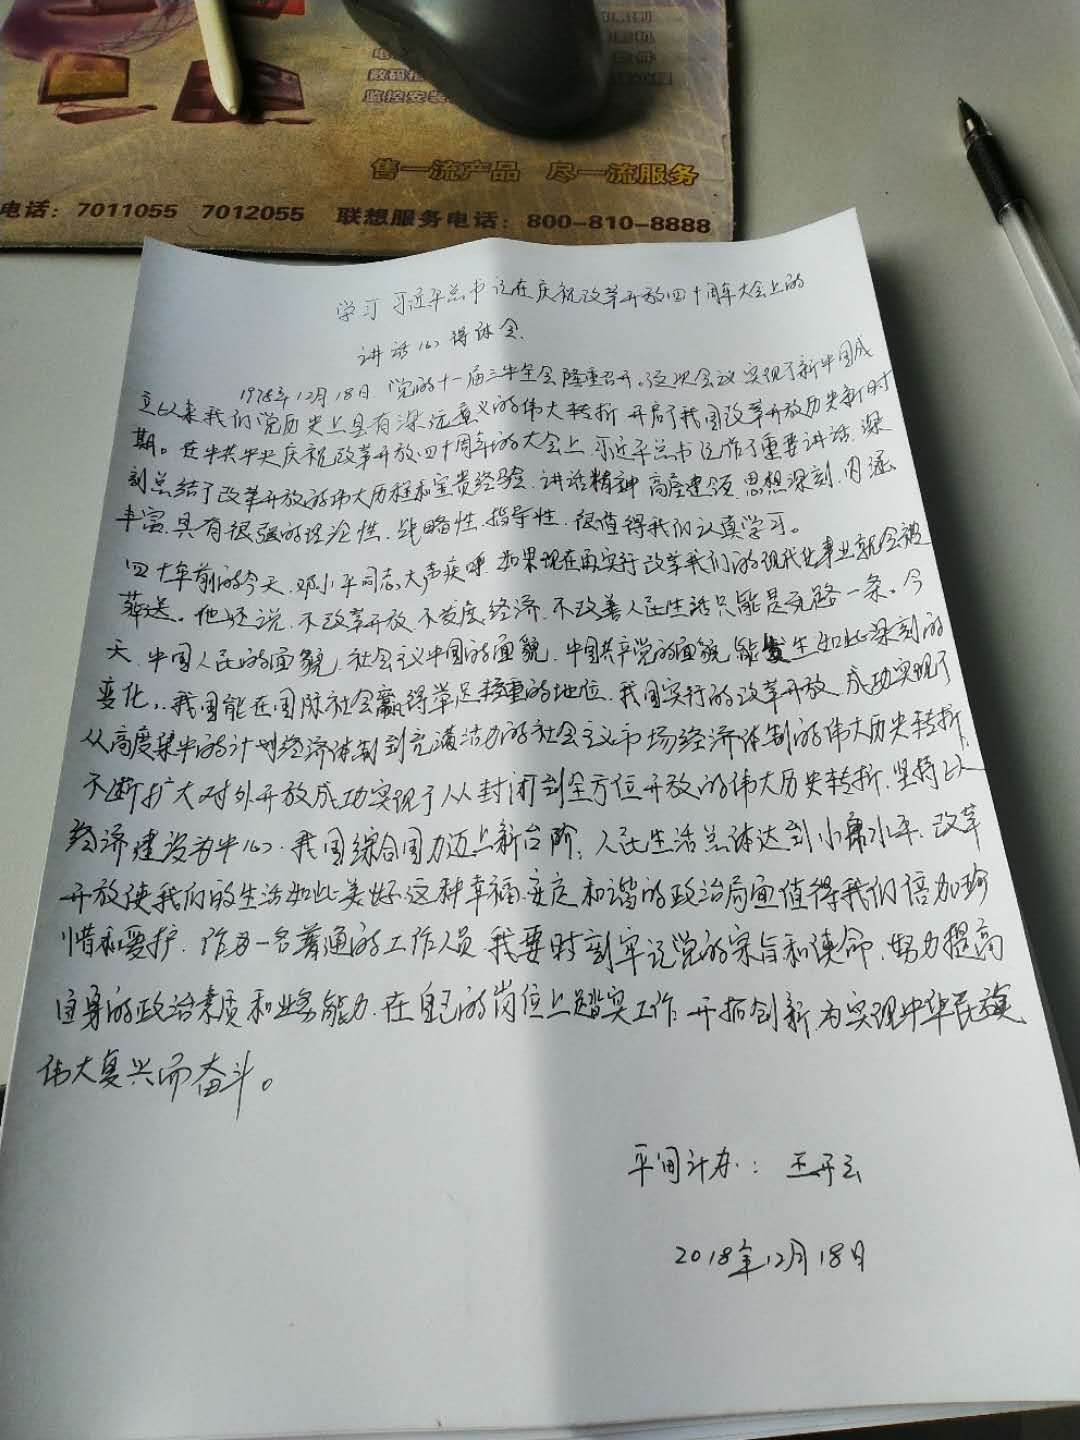 数码
监控安装
售一流产品 尽一流服务
电话：7011055 7012055 联想服务电话：800-810-8888
学习习近平总书记在庆祝改革开放四十周年大会上的
讲话心得体会
1978年12月18日 党的十一届三中全会隆重召开。这次会议实现了新中国成
立以来我们党历史上具有深远意义的伟大转折 开启了我国改革开放历史新时
期。在中共中央庆祝改革开放四十周年的大会上，习近平总书记作了重要讲话，深
刻总结了改革开放的伟大历程和宝贵经验，讲话精神高屋建瓴 思想深刻，内涵
丰富，具有很强的理论性，战略性，指导性，很值得我们认真学习。
四十年前的今天，邓小平同志大声疾呼 如果现在再不实行改革我们的现代化事业就会被
葬送。他还说，不改革开放 不发展经济，不改善人民生活只能是死路一条。今
天，中国人民的面貌，社会主义中国的面貌，中国共产党的面貌能发生如此深刻的
变化，我国能在国际社会赢得举足轻重的地位，我国实行的改革开放，成功实现了
从高度集中的计划经济体制到充满活力的社会主义市场经济体制的伟大历史转折，
不断扩大对外开放成功实现了从封闭到全方位开放的伟大历史转折，坚持以
经济建设为中心，我国综合国力迈上新台阶，人民生活总体达到小康水平，改革
开放使我们的生活如此美好，这种幸福、安定和谐的政治局面值得我们倍加珍
惜和爱护，作为一名普通的工作人员 我要时刻牢记党的宗旨和使命，努力提高
自身的政治素质和业务能力，在自己的岗位上踏实工作，开拓创新，为实现中华民族
伟大复兴而奋斗。
平间计办：王开云
2018年12月18日